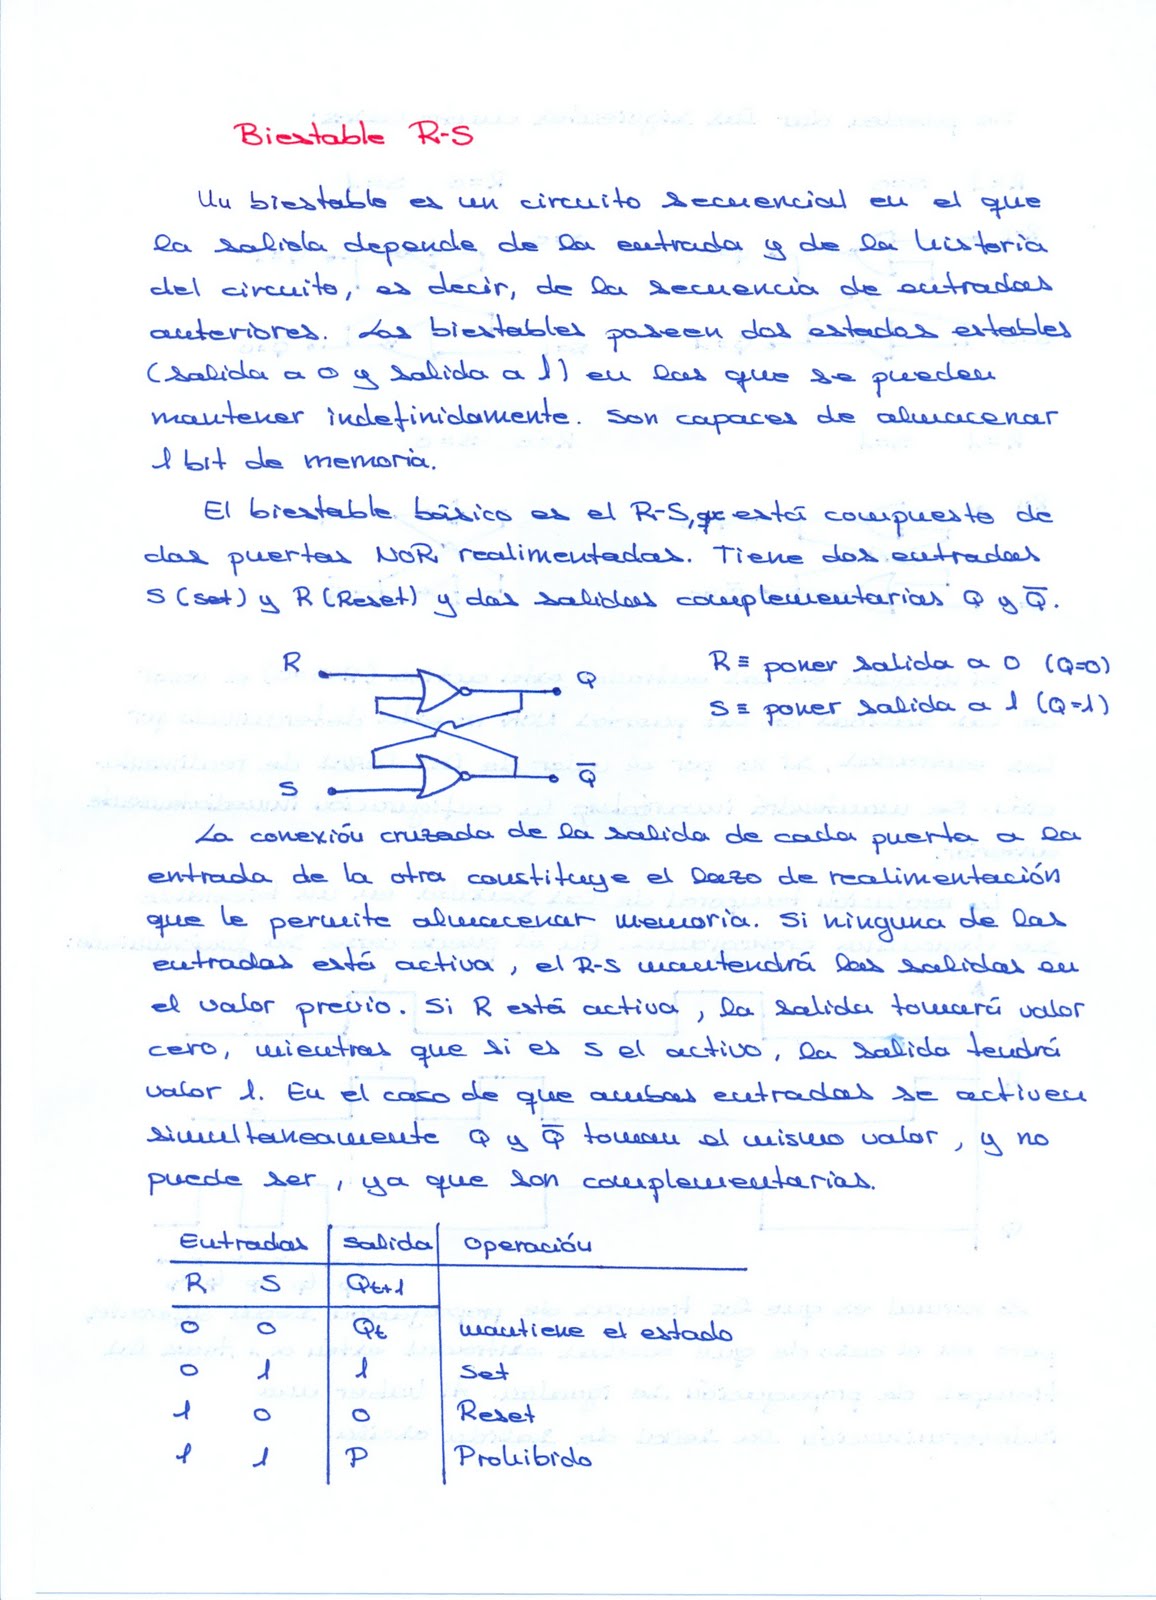 Biestable R-S
Un biestable es un circuito secuencial en el que
la salida depende de la entrada y de la historia
del circuito, es decir, de la secuencia de entradas
anteriores. Los biestables poseen dos estados estables
(salida a 0 y salida a 1) en las que se pueden
mantener indefinidamente. Son capaces de almacenar
1 bit de memoria.
El biestable básico es el R-S, que está compuesto de
dos puertas NOR realimentadas. Tiene dos entradas
S (set) y R (Reset) y dos salidas complementarias Q y Q̅.
R Q R ≡ poner salida a 0 (Q=0)
S ≡ poner salida a 1 (Q=1)
S Q̅
La conexión cruzada de la salida de cada puerta a la
entrada de la otra constituye el lazo de realimentación
que le permite almacenar memoria. Si ninguna de las
entradas está activa, el R-S mantendrá las salidas en
el valor previo. Si R está activa, la salida tomará valor
cero, mientras que si es S el activo, la salida tendrá
valor 1. En el caso de que ambas entradas se activen
simultaneamente Q y Q̅ toman el mismo valor, y no
puede ser, ya que son complementarias.
Entradas Salida Operación
R S Qt+1
0 0 Qt mantiene el estado
0 1 1 Set
1 0 0 Reset
1 1 P Prohibido